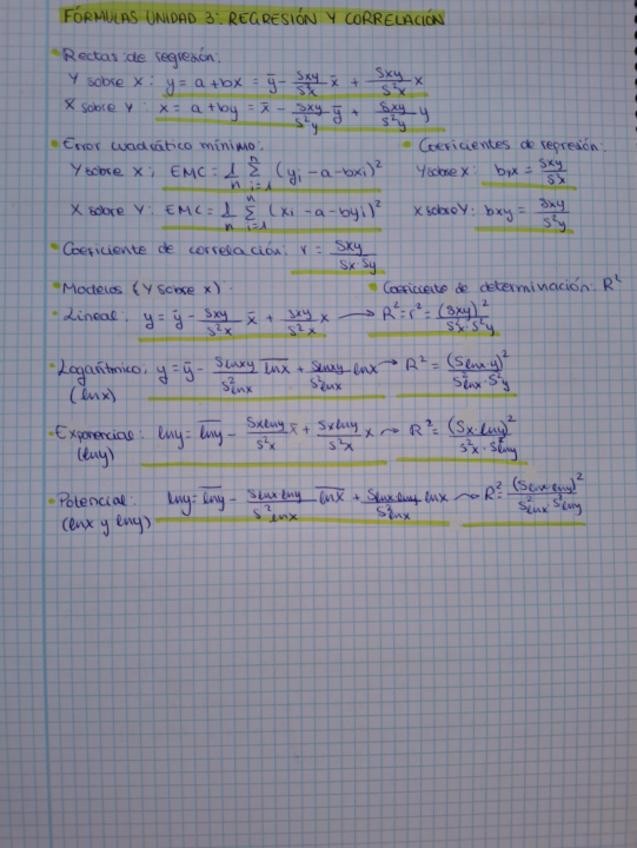 FÓRMULAS UNIDAD 3: REGRESIÓN Y CORRELACIÓN
• Rectas de regresión:
Y sobre X: y = a + bx = ȳ - Sxy/S²x x̄ + Sxy/S²x x
X sobre Y: x = a + by = x̄ - Sxy/S²y ȳ + Sxy/S²y y
• Error cuadrático mínimo:
Y sobre X: EMC = 1/n Σ_{i=1}^{n} (yi - a - bxi)²
X sobre Y: EMC = 1/n Σ_{i=1}^{n} (xi - a - byi)²
• Coeficientes de regresión:
Y sobre X: byx = Sxy/S²x
X sobre Y: bxy = Sxy/S²y
• Coeficiente de correlación: r = Sxy/Sx·Sy
• Modelos (Y sobre X):
• Coeficiente de determinación: R²
• Lineal: y = ȳ - Sxy/S²x x̄ + Sxy/S²x x → R² = r² = (Sxy)²/S²x·S²y
• Logarítmico: y = ȳ - Slnxy/S²lnx \overline{lnx} + Slnxy/S²lnx lnx → R² = (Slnx·y)²/S²lnx·S²y
(lnx)
• Exponencial: lny = \overline{lny} - Sxlny/S²x x̄ + Sxlny/S²x x → R² = (Sx·lny)²/S²x·S²lny
(lny)
• Potencial: lny = \overline{lny} - Slnx·lny/S²lnx \overline{lnx} + Slnx·lny/S²lnx lnx → R² = (Slnx·lny)²/S²lnx·S²lny
(lnx y lny)